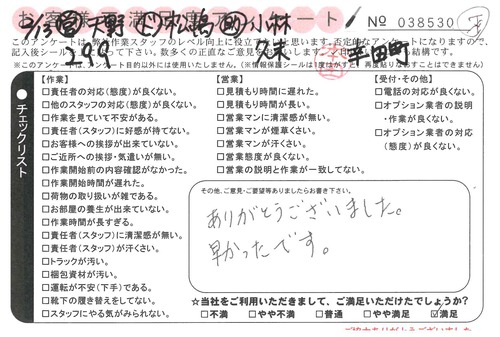 No 038530
このアンケートは、弊社作業スタッフのレベル向上に役立て
※このアンケートは、アンケート目的以外には使用いたしません。(※情報保護シールは1度はがすと、再度貼りなおすことはできません)
チェックリスト
【作業】
□責任者の対応(態度)が良くない。
□他のスタッフの対応(態度)が良くない。
□作業を見ていて不安がある。
□責任者(スタッフ)に好感が持てない。
□お客様への挨拶が出来ていない。
□ご近所への挨拶・気遣いが無い。
□作業開始前の内容確認がなかった。
□作業開始時間が遅れた。
□荷物の取り扱いが雑である。
□お部屋の養生が出来ていない。
□作業時間が長すぎる。
□責任者(スタッフ)に清潔感が無い。
□責任者(スタッフ)が汗くさい。
□トラックが汚い。
□梱包資材が汚い。
□運転が不安(下手)である。
□靴下の履き替えをしてない。
□スタッフにやる気がみられない。
【営業】
□見積もり時間に遅れた。
□見積もり時間が長い。
□営業マンに清潔感が無い。
□営業マンが煙草くさい。
□営業マンが汗くさい。
□営業態度が良くない。
□営業の説明と作業が一致してない。
【受付・その他】
□電話の対応が良くない。
□オプション業者の説明
・作業が良くない。
□オプション業者の対応
(態度)が良くない。
その他、ご意見・ご要望等ありましたらお書き下さい。
ありがとうございました。
早かったです。
☆当社をご利用いただきまして、ご満足いただけたでしょうか?
□不満 □やや不満 □普通 □やや満足 ☑満足
ご協力ありがとうございました